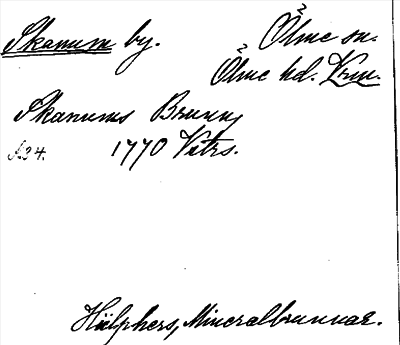 Skanum by. Ölme sn.
Ölme hd. Vrm.
Skanums Brunn,
s. 34. 1770 Vetrs.
Hülphers, Mineralbrunnar.